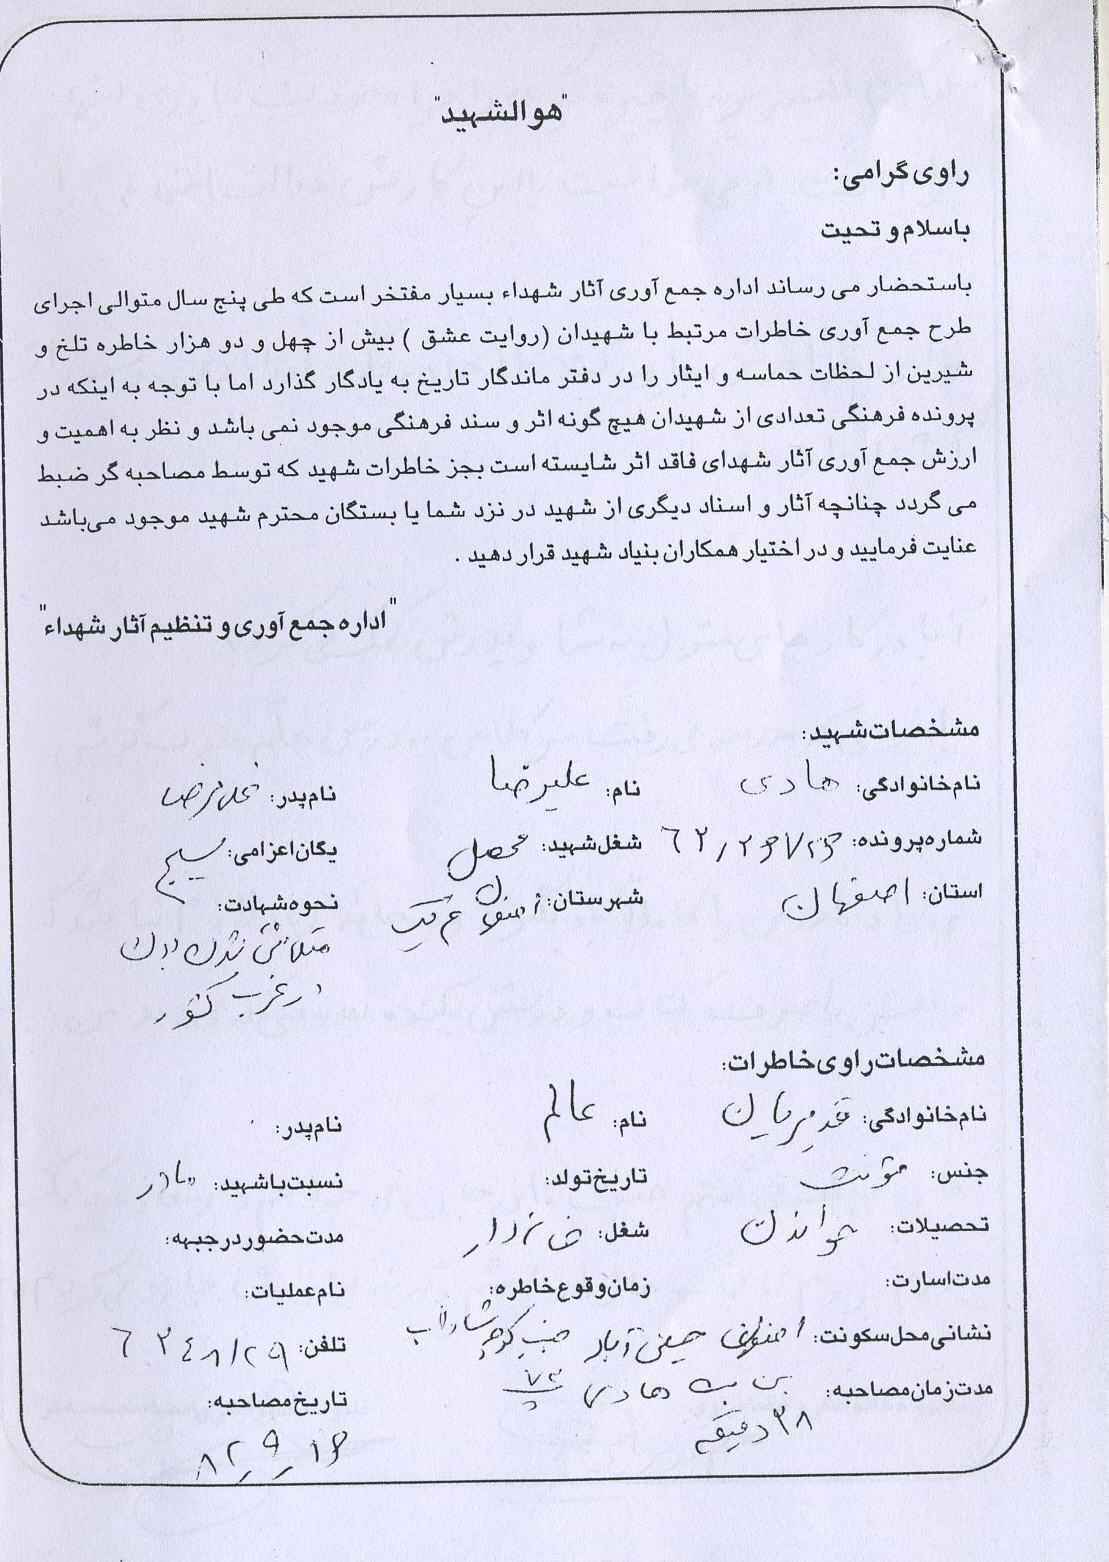 "هوالشهید"
راوی گرامی:
باسلام و تحیت
باستحضار می رساند اداره جمع آوری آثار شهداء بسیار مفتخر است که طی پنج سال متوالی اجرای
طرح جمع آوری خاطرات مرتبط با شهیدان (روایت عشق ) بیش از چهل و دو هزار خاطره تلخ و
شیرین از لحظات حماسه و ایثار را در دفتر ماندگار تاریخ به یادگار گذارد اما با توجه به اینکه در
پرونده فرهنگی تعدادی از شهیدان هیچ گونه اثر و سند فرهنگی موجود نمی باشد و نظر به اهمیت و
ارزش جمع آوری آثار شهدای فاقد اثر شایسته است بجز خاطرات شهید که توسط مصاحبه گر ضبط
می گردد چنانچه آثار و اسناد دیگری از شهید در نزد شما یا بستگان محترم شهید موجود می‌باشد
عنایت فرمایید و در اختیار همکاران بنیاد شهید قرار دهید .
"اداره جمع آوری و تنظیم آثار شهداء"
مشخصات شهید:
نام خانوادگی: هادی نام: علیرضا نام پدر: غلامرضا
شماره پرونده: شغل شهید: محصل یگان اعزامی: بسیج
استان: اصفهان شهرستان: اصفهان نحوه شهادت:
متلاشی شدن بدن
در غرب کشور
مشخصات راوی خاطرات:
نام خانوادگی: نام: عالم نام پدر:
جنس: مؤنث تاریخ تولد: نسبت با شهید: مادر
تحصیلات: خواندن شغل: خانه دار مدت حضور در جبهه:
مدت اسارت: زمان وقوع خاطره: نام عملیات:
نشانی محل سکونت: اصفهان حسین آباد جنب کوچه شاداب تلفن: ۶۲۴۸۱۲۹
بن بست هادی پ ۷۳
مدت زمان مصاحبه: ۳۸ دقیقه تاریخ مصاحبه:
۸۲_۹_۱۶